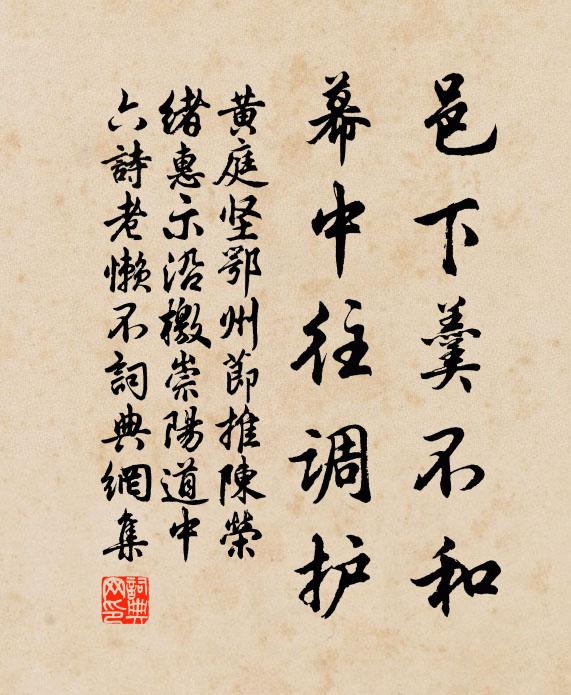 邑下羹不和
幕中往调护
黄庭坚鄂州節推陳榮
緒惠示沿檄崇陽道中
六詩老懒不詞典網集
詞典网印